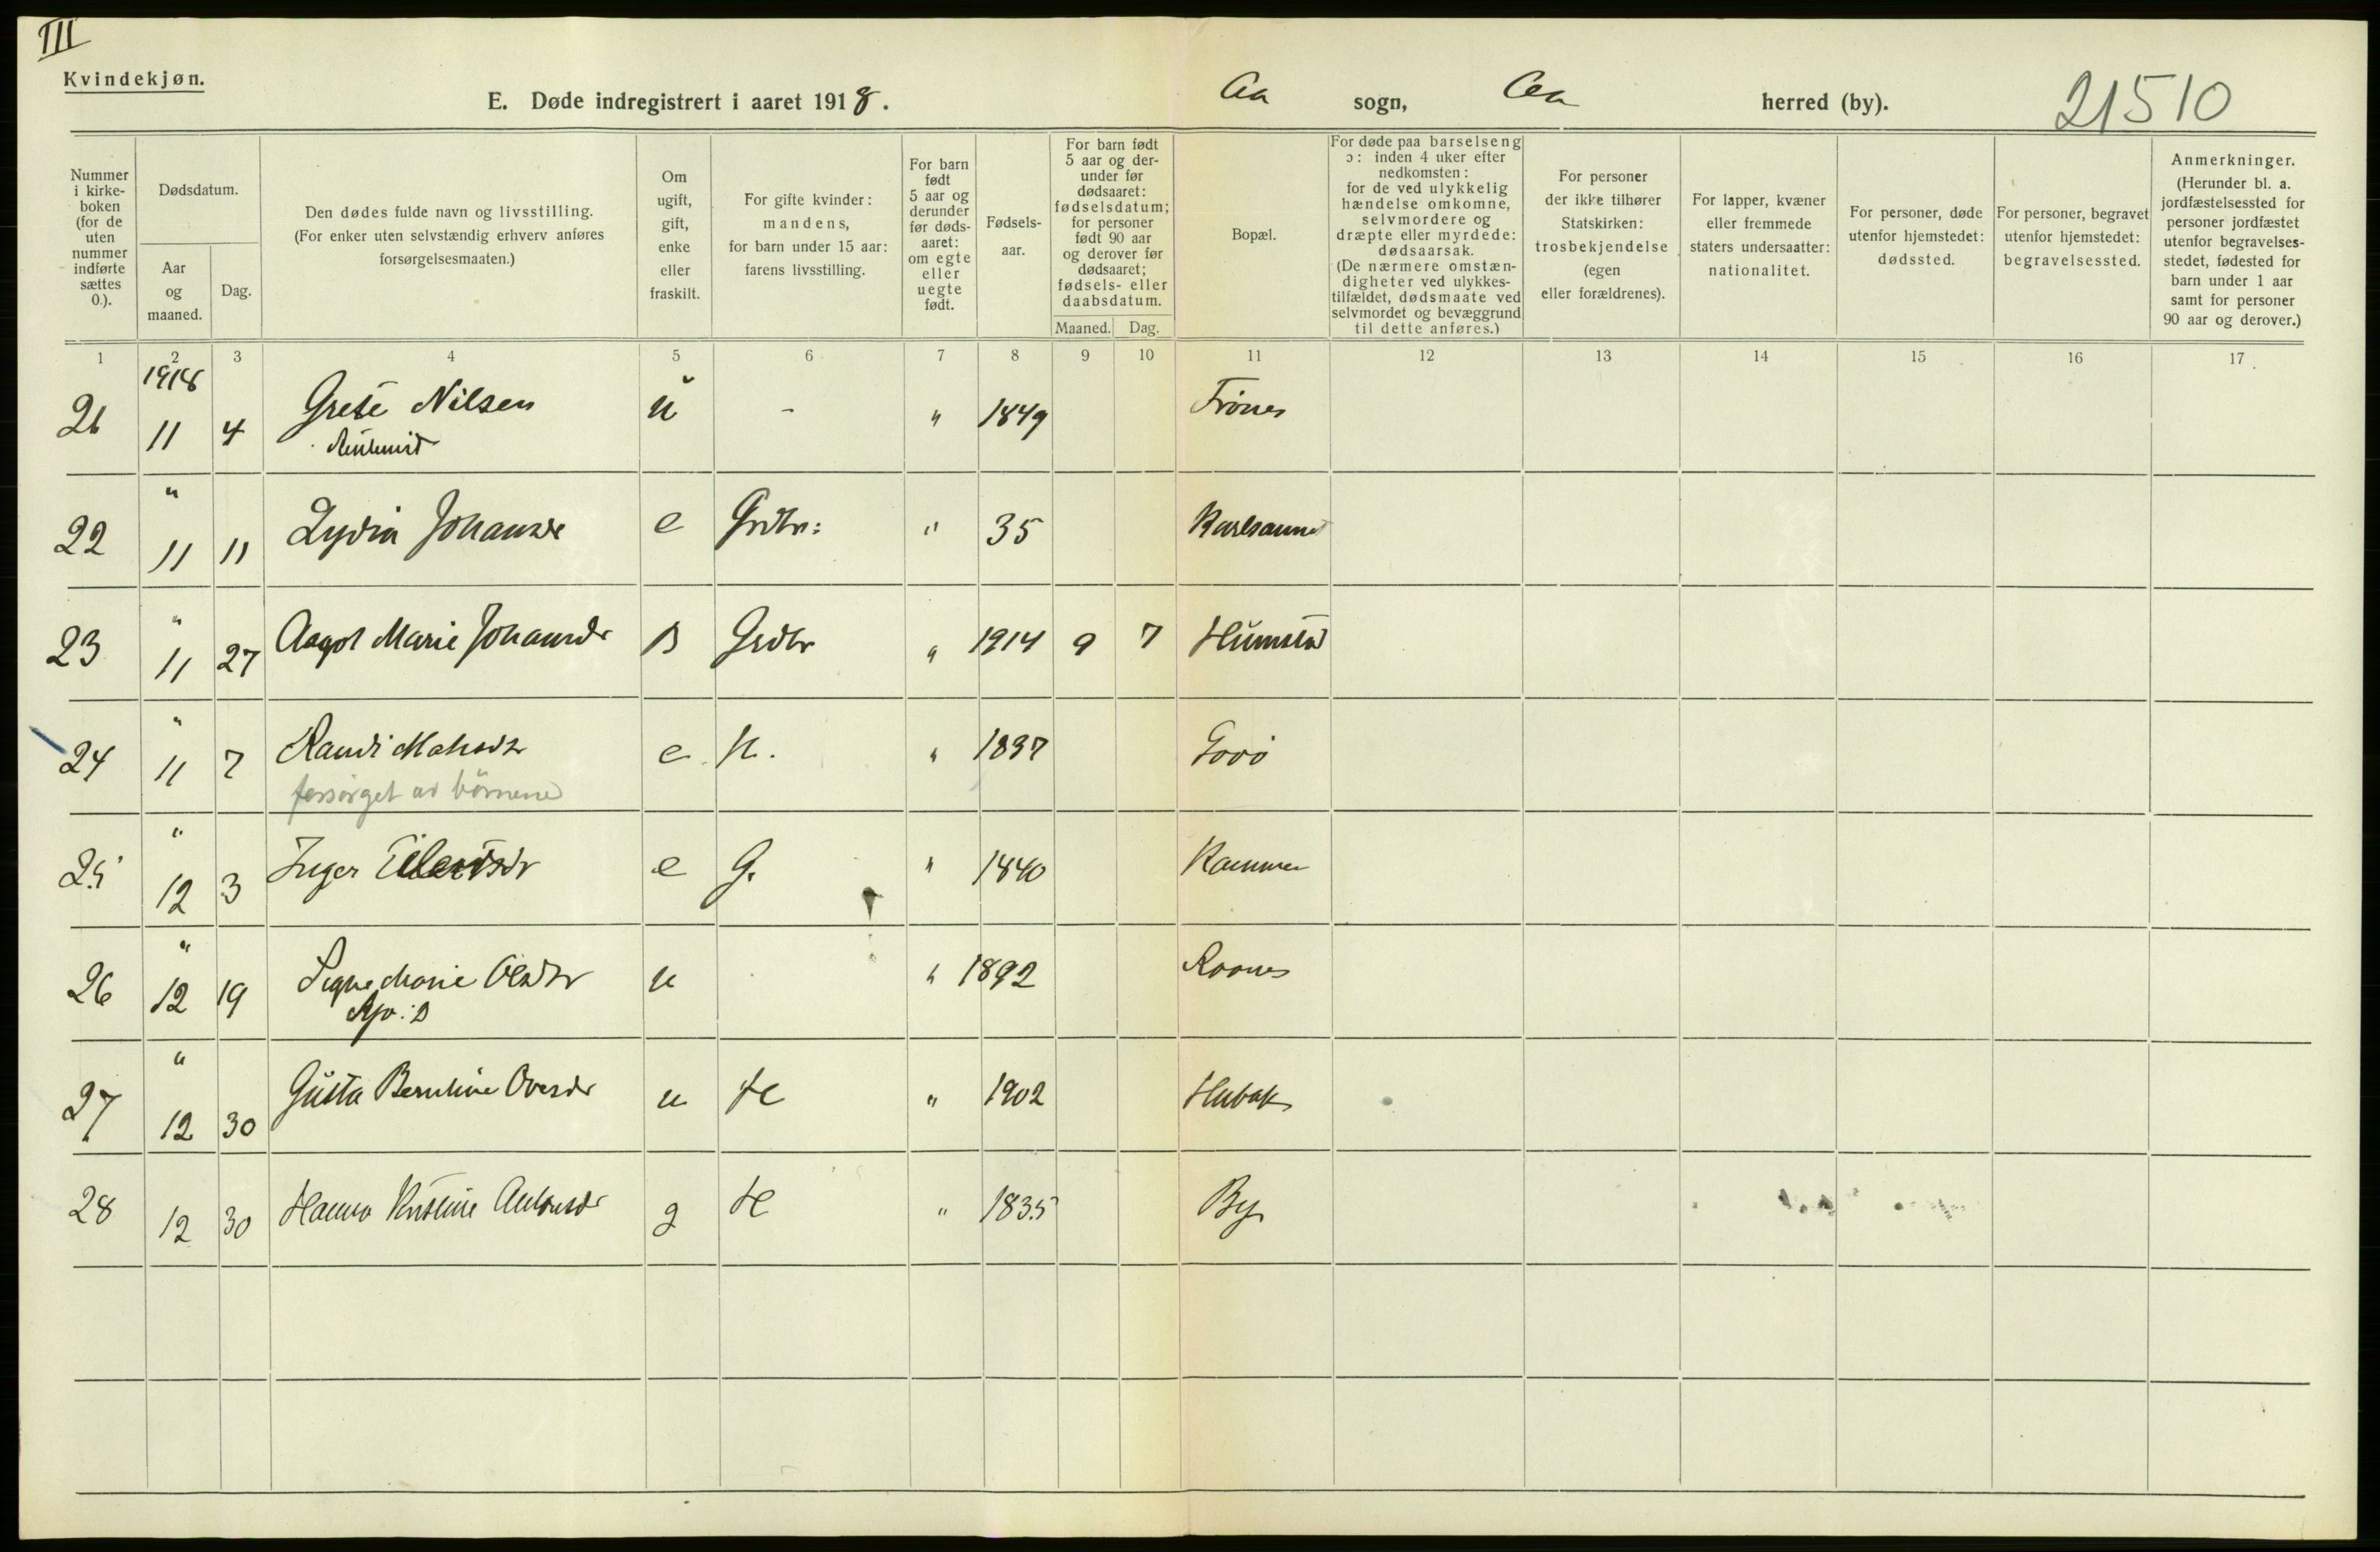 III
Kvindekjøn.
E. Døde indregistrert i aaret 1918.
Aa sogn, Aa herred (by).
21510
Nummer i kirke-boken (for de uten nummer indførte sættes 0.).
Dødsdatum.
Aar og maaned.
Dag.
Den dødes fulde navn og livsstilling.
(For enker uten selvstændig erhverv anføres forsørgelsesmaaten.)
Om ugift, gift, enke eller fraskilt.
For gifte kvinder: mandens, for barn under 15 aar: farens livsstilling.
For barn født 5 aar og derunder før døds-aaret: om egte eller uegte født.
Fødsels-aar.
For barn født 5 aar og der-under før dødsaaret: fødselsdatum; for personer født 90 aar og derover før dødsaaret; fødsels- eller daabsdatum.
Maaned. Dag.
Bopæl.
For døde paa barselseng ɔ: inden 4 uker efter nedkomsten: for de ved ulykkelig hændelse omkomne, selvmordere og dræpte eller myrdede: dødsaarsak. (De nærmere omstæn-digheter ved ulykkes-tilfældet, dødsmaate ved selvmordet og bevæggrund til dette anføres.)
For personer der ikke tilhører Statskirken: trosbekjendelse (egen eller forældrenes).
For lapper, kvæner eller fremmede staters undersaatter: nationalitet.
For personer, døde utenfor hjemstedet: dødssted.
For personer, begravet utenfor hjemstedet: begravelsessted.
Anmerkninger.
(Herunder bl. a. jordfæstelsessted for personer jordfæstet utenfor begravelses-stedet, fødested for barn under 1 aar samt for personer 90 aar og derover.)
1 2 3 4 5 6 7 8 9 10 11 12 13 14 15 16 17
1918
21 11 4 Grete Nilsen u - " 1849 Frönes
"
22 11 11 Lydia Johansdr e Grdbr: " 35
"
23 11 27 Aagot Marie Johansdr B Grdbr " 1914 9 7 Humstad
"
24 11 7 Randi Matsdr e H. " 1837
forsörget av börnene
"
25 12 3 Inger Eilertsdr e G. " 1840
"
26 12 19 Signe Marie Olsdr u " 1892
"
27 12 30 Gusta Berntine Ovesdr u H " 1902 Hubak
28 12 30 Hanna Kristine Antonsdr g H " 1835 By